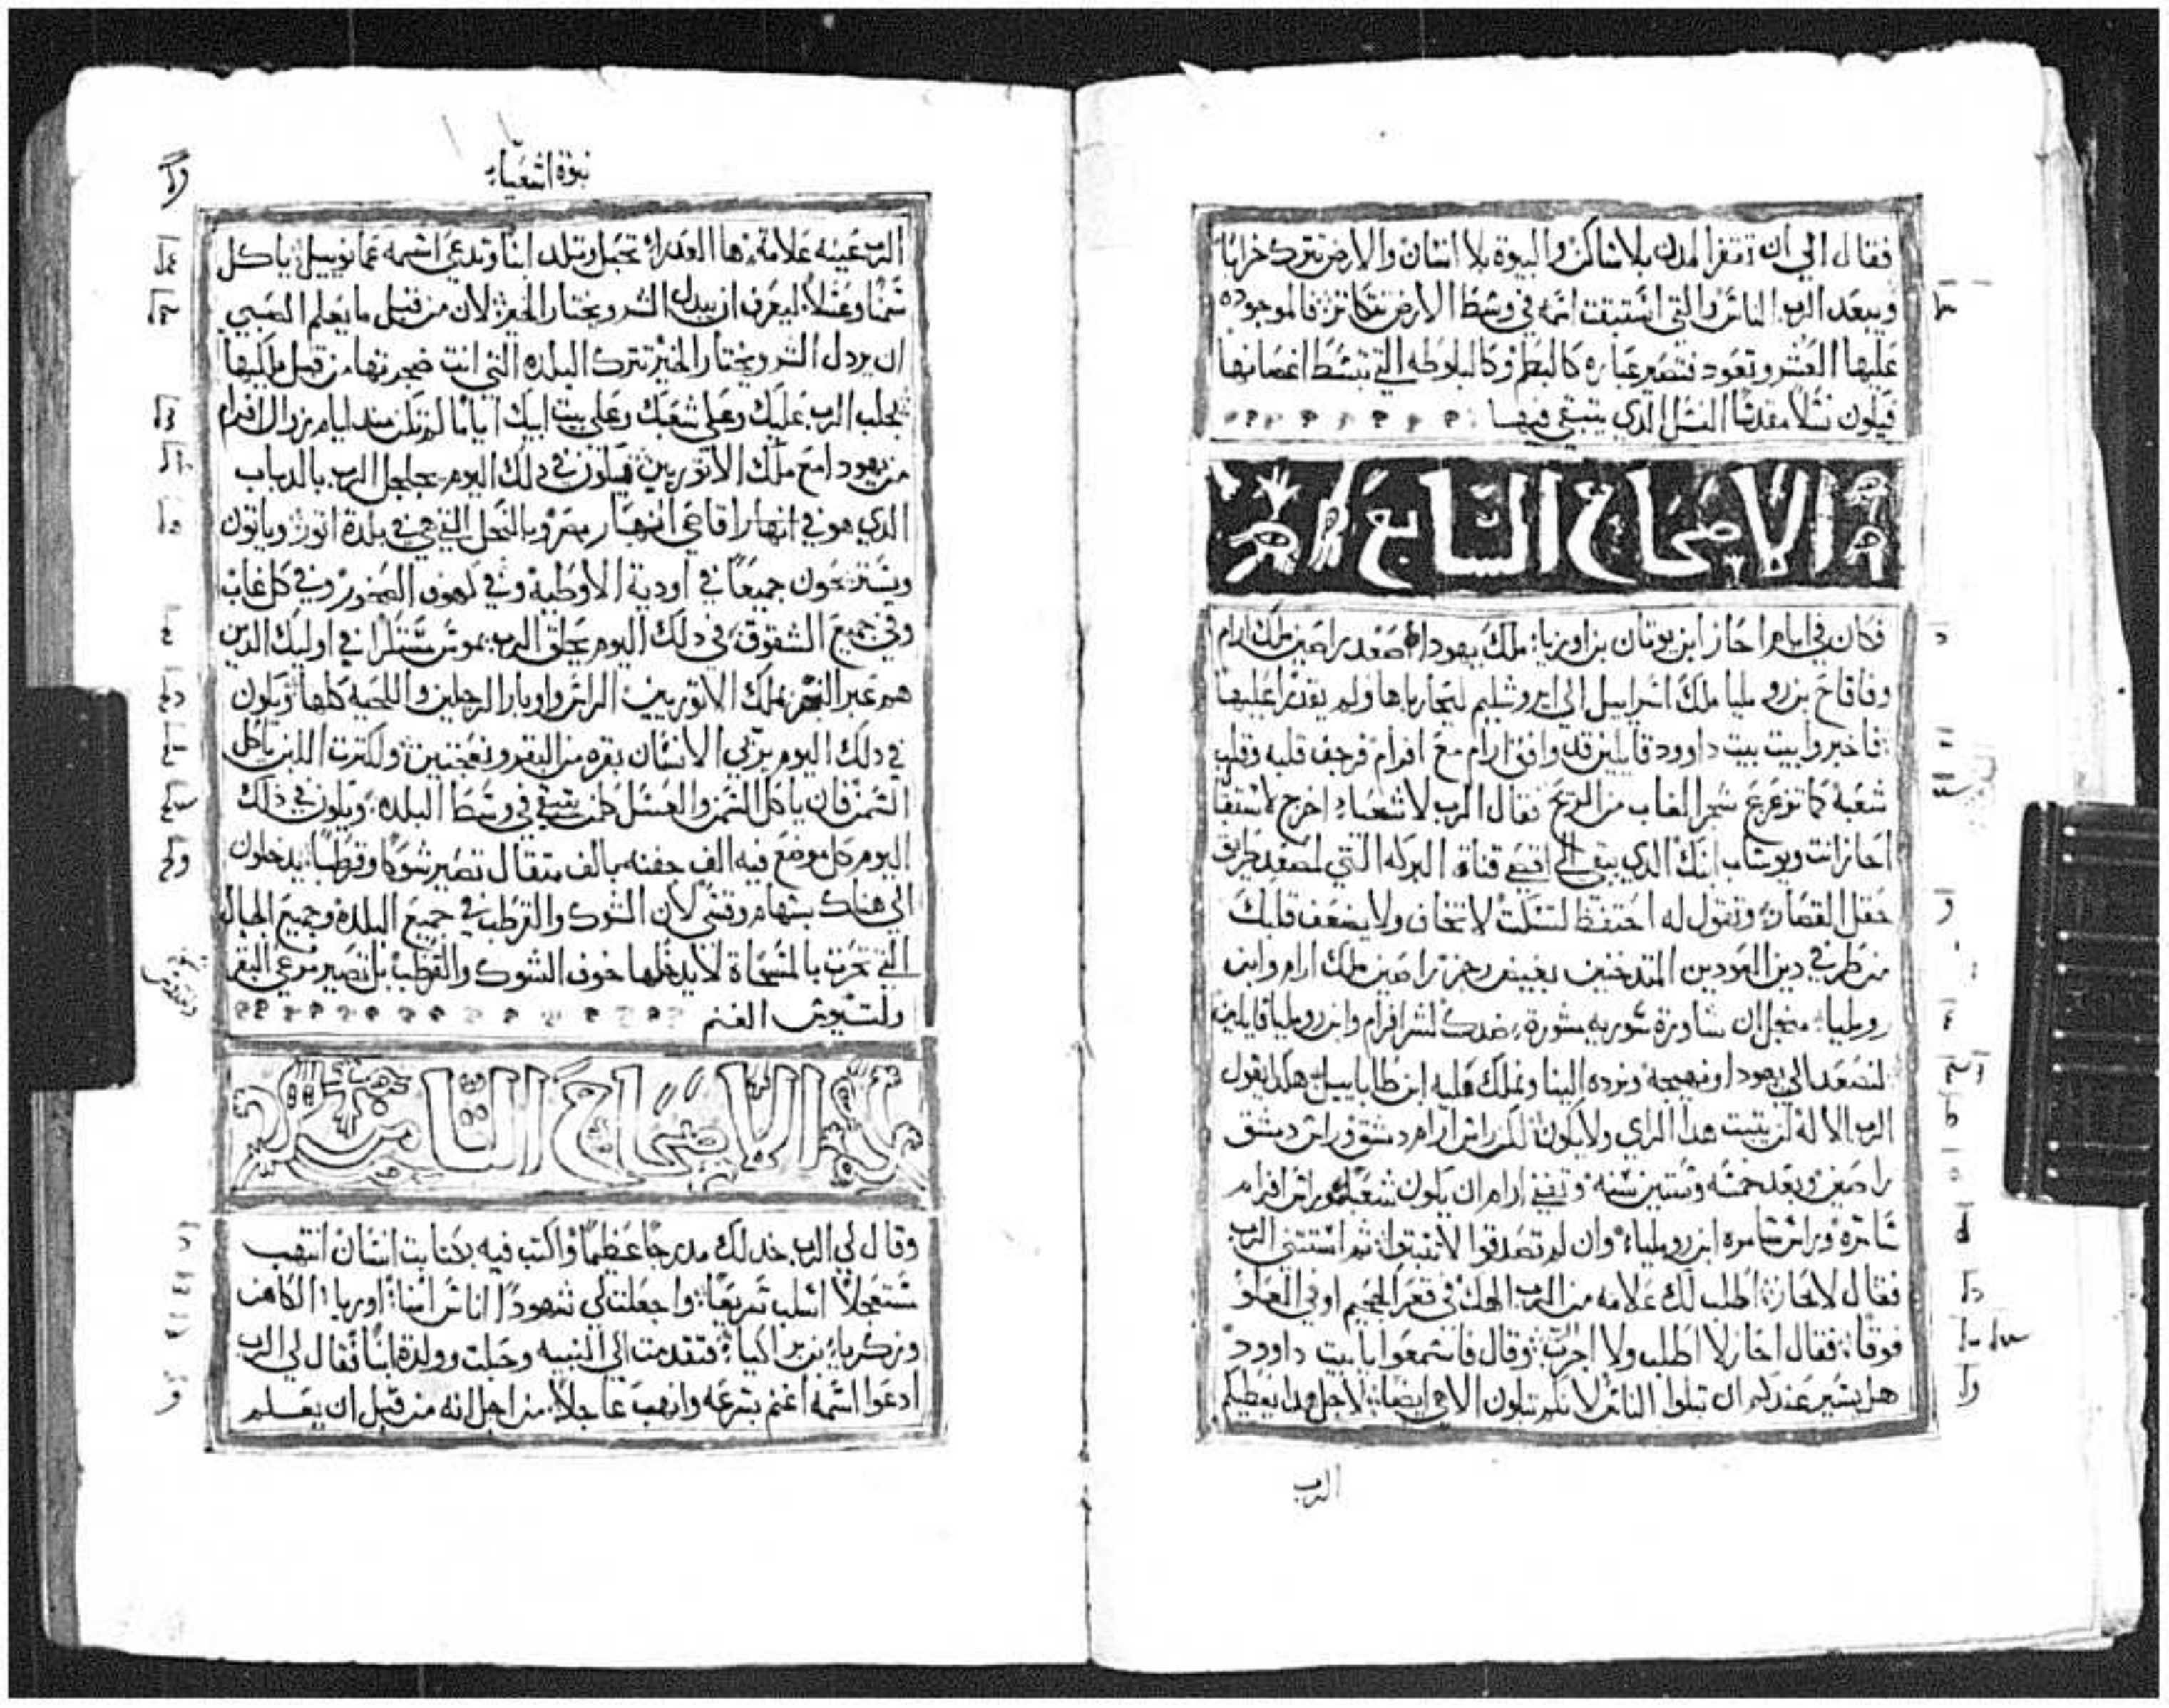 فقال الي ان تقفر المدن بلا ساكن والبيوة بلا انسان والارض تترك خرابا
ويبعد الرب الناس والتي استبقت انمه في وسط الارض تتكاثر فالموجوده
عليها العشر وتعود فتصير عباره كالبطم وكالبلوطه التي تبسط اغصانها
فيكون نسلا مقدسا النسل الذي يتبقي فيها
الاصحاح السابع
فكان في ايام احاز ابن يوتان بن اوزيا ملك يهودا صعد راصين ملك ارام
وفاقاح بن روميليا ملك اسراييل الي ايروشليم ليحارباها ولم يقدرا عليها
فاخبروا بيت بيت داوود قايلين قد وافق ارام مع افرام فرجف قلبه وقلب
شعبه كما تزعزع شجر الغاب من الريح فقال الرب لاشعياء اخرج لاستقبال
احاز انت ويوشاب ابنك الذي يبقي الي اقصي قناة البركه التي لمصعد طريق
حقل القصار وتقول له احتفظ لتسكت لا تخاف ولا يضعف قلبك
من طرفي دين العودين المتدخنين بغيض رجز راصين ملك ارام وابن
روميليا من اجل ان شاورة شوريه مشورة ضدك لشر افرام وابن روميليا قايلين
لنصعد الي يهودا ونهيجه ونرده الينا ونملك عليه ابن طاباييل هكذا يقول
الرب الاله لن يتبت هدا الراي ولا يكون لكن راس ارام دمشق وراس دمشق
راصين وبعد خمسه وستين سنه وتفني ارام ان يكون شعبا وراس افرام
سامرة وراس سامره ابن روميلياء وان لم تصدقوا لا تفبتوا ثم استتني الرب
فقال لاحاز اطلب لك علامه من الرب الهك في قعر الجحيم او في العلو
فوقا فقال احاز لا اطلب ولا اجرب وقال فاسمعوا يا بيت داوود
هل يسير عندكم ان تبلوا الناس لانكم تبلون الاهي ايضا لاجل هدا يعطيكم
الرب
نبوة اشعياء
الرب عينه علامة ها العدراء تحبل وتلد ابنا وتدعي اسمه عمانوييل ياكل
سمنا وعسلا ليعرف ان يبدل الشر ويختار الخير لان من قبل ما يعلم الصبي
ان يردل الشر ويختار الخير تترك البلده التي انت ضجرتها من قبل ملكيها
يجلب الرب عليك وعلي شعبك وعلي بيت ابيك اياما لم تكن مند ايام زوال افرام
من يهودا مع ملك الاتوريين فيكون في دلك اليوم يجلجل الرب بالدباب
الدي هو في انهار اقاصي انهار مصر وبالنحل التي هي في بلدة اتور وياتون
ويستريحون جميعا في اودية الاوطيه وفي كهوف الصخور وفي كل غاب
وفي جميع الشقوق في دلك اليوم يحلق الرب بموس في اوليك الدين
هم عبر النهر بملك الاتوريين الراس واوبار الرجلين واللحيه كلها ويكون
في دلك اليوم يربي الانسان بقره من البقر ونعجتين ولكترت اللبن ياكل
السمن فان ياكل السمن والعسل كلمن يتبقي في وسط البلده ويكون في دلك
اليوم كل موضع فيه الف جفنه بالف متقال تصير شوكا وقرطبا يدخلون
الي هناك بسهام وقسي لان الشوك والقرطب في جميع البلده وجميع الجبال
التي تحرت بالمسحاة لا يدخلها خوف الشوك والقرطب بل تصير مرعي البقر
ولتدويس الغنم
الاصحاح التامن
وقال لي الرب خد لك مدرجا عظيما واكتب فيه بكتابت انسان انتهب
مستعجلا اسلب سريعا واجعلت لي شهودا اناس امنا اوريا الكاهن
وزكريا بن براكيا فتقدمت الي النبيه وحبلت وولدة ابنا فقال لي الرب
ادعوا اسمه اغنم بسرعه وانهب عاجلا من اجل انه من قبل ان يعلم